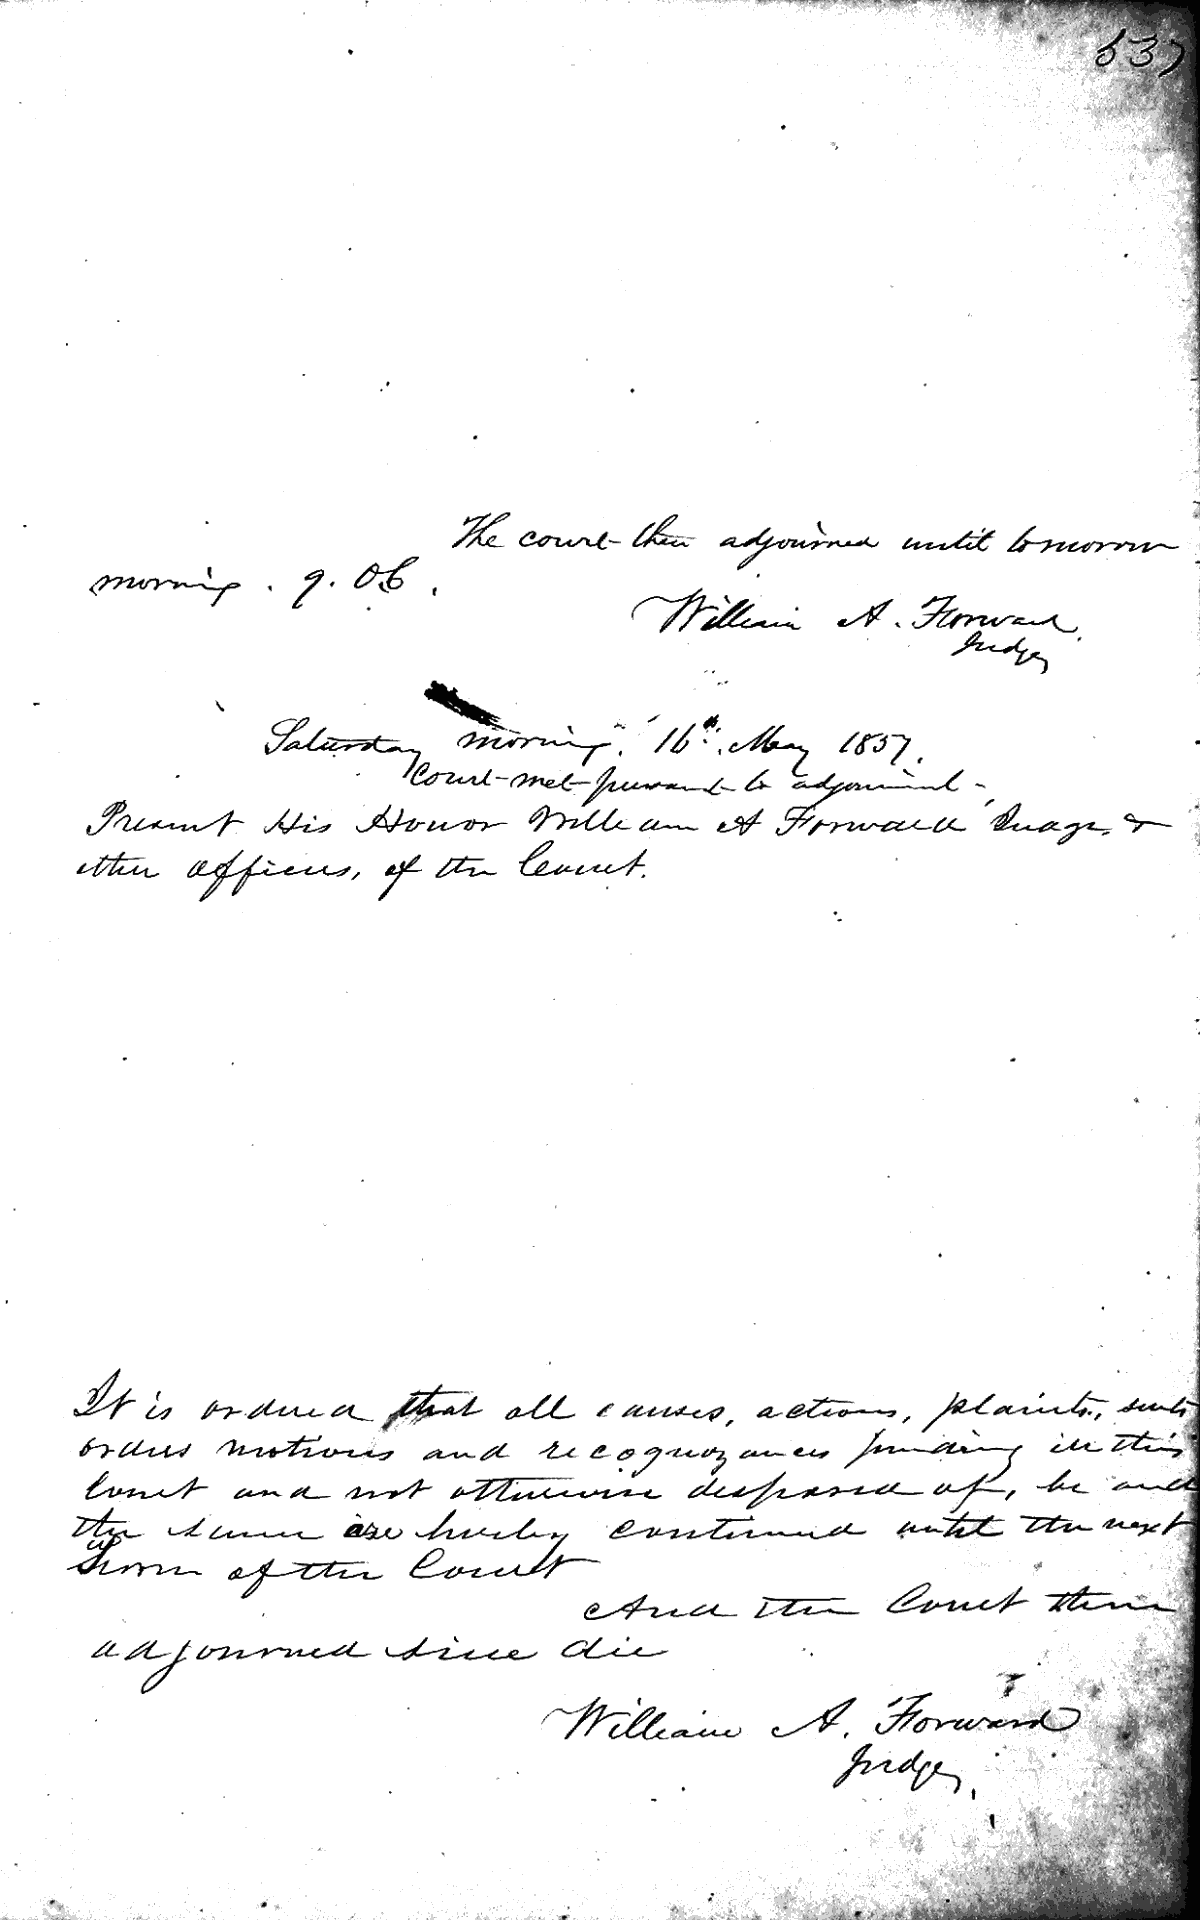 537
The court then adjourned until tomorrow
morning. 9. OC.
William A. Forward.
Judge
Saturday morning. 16th. May 1857.
Court met pursuant to adjournment.
Present His Honor William A Forward Judge &
other officers, of the Court.
It is ordered that all causes, actions, plaints, suits
orders motions and recognizances pending in this
Court and not otherwise desposed of, be and
the same are hereby continued until the next
Term of the Court
And the Court then
adjourned sine die
William A. Forward
Judge,